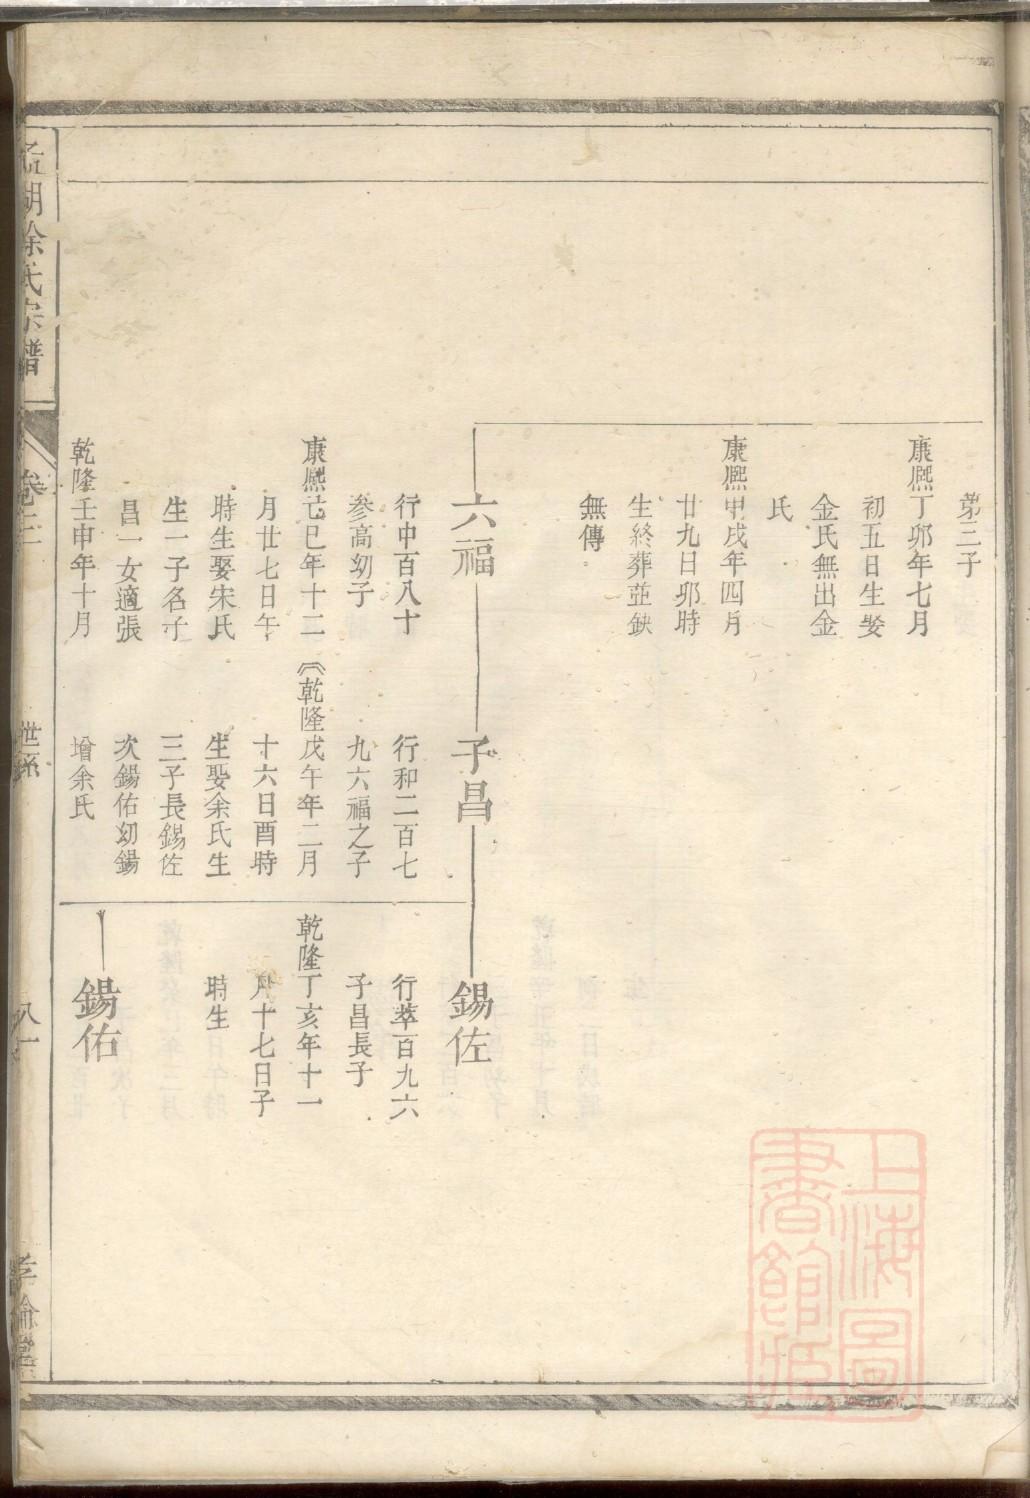 第三子
康熙丁卯年七月
初五日生娶
金氏無出金
氏
康熙甲戌年四月
廿九日卯時
生終葬並缺
無傳
六福
行中百八十
參高幼子
康熙己巳年十二
月廿七日午
時生娶宋氏
生一子名子
昌一女適張
乾隆壬申年十月
子昌
行和二百七
九六福之子
乾隆戊午年二月
十六日酉時
生娶余氏生
三子長錫佐
次錫佑幼錫
增余氏
錫佐
行萃百九六
子昌長子
乾隆丁亥年十一
月十七日子
時生
錫佑
湖徐氏宗譜
卷二
世系
八一
孝倫堂
上海圖
書館藏